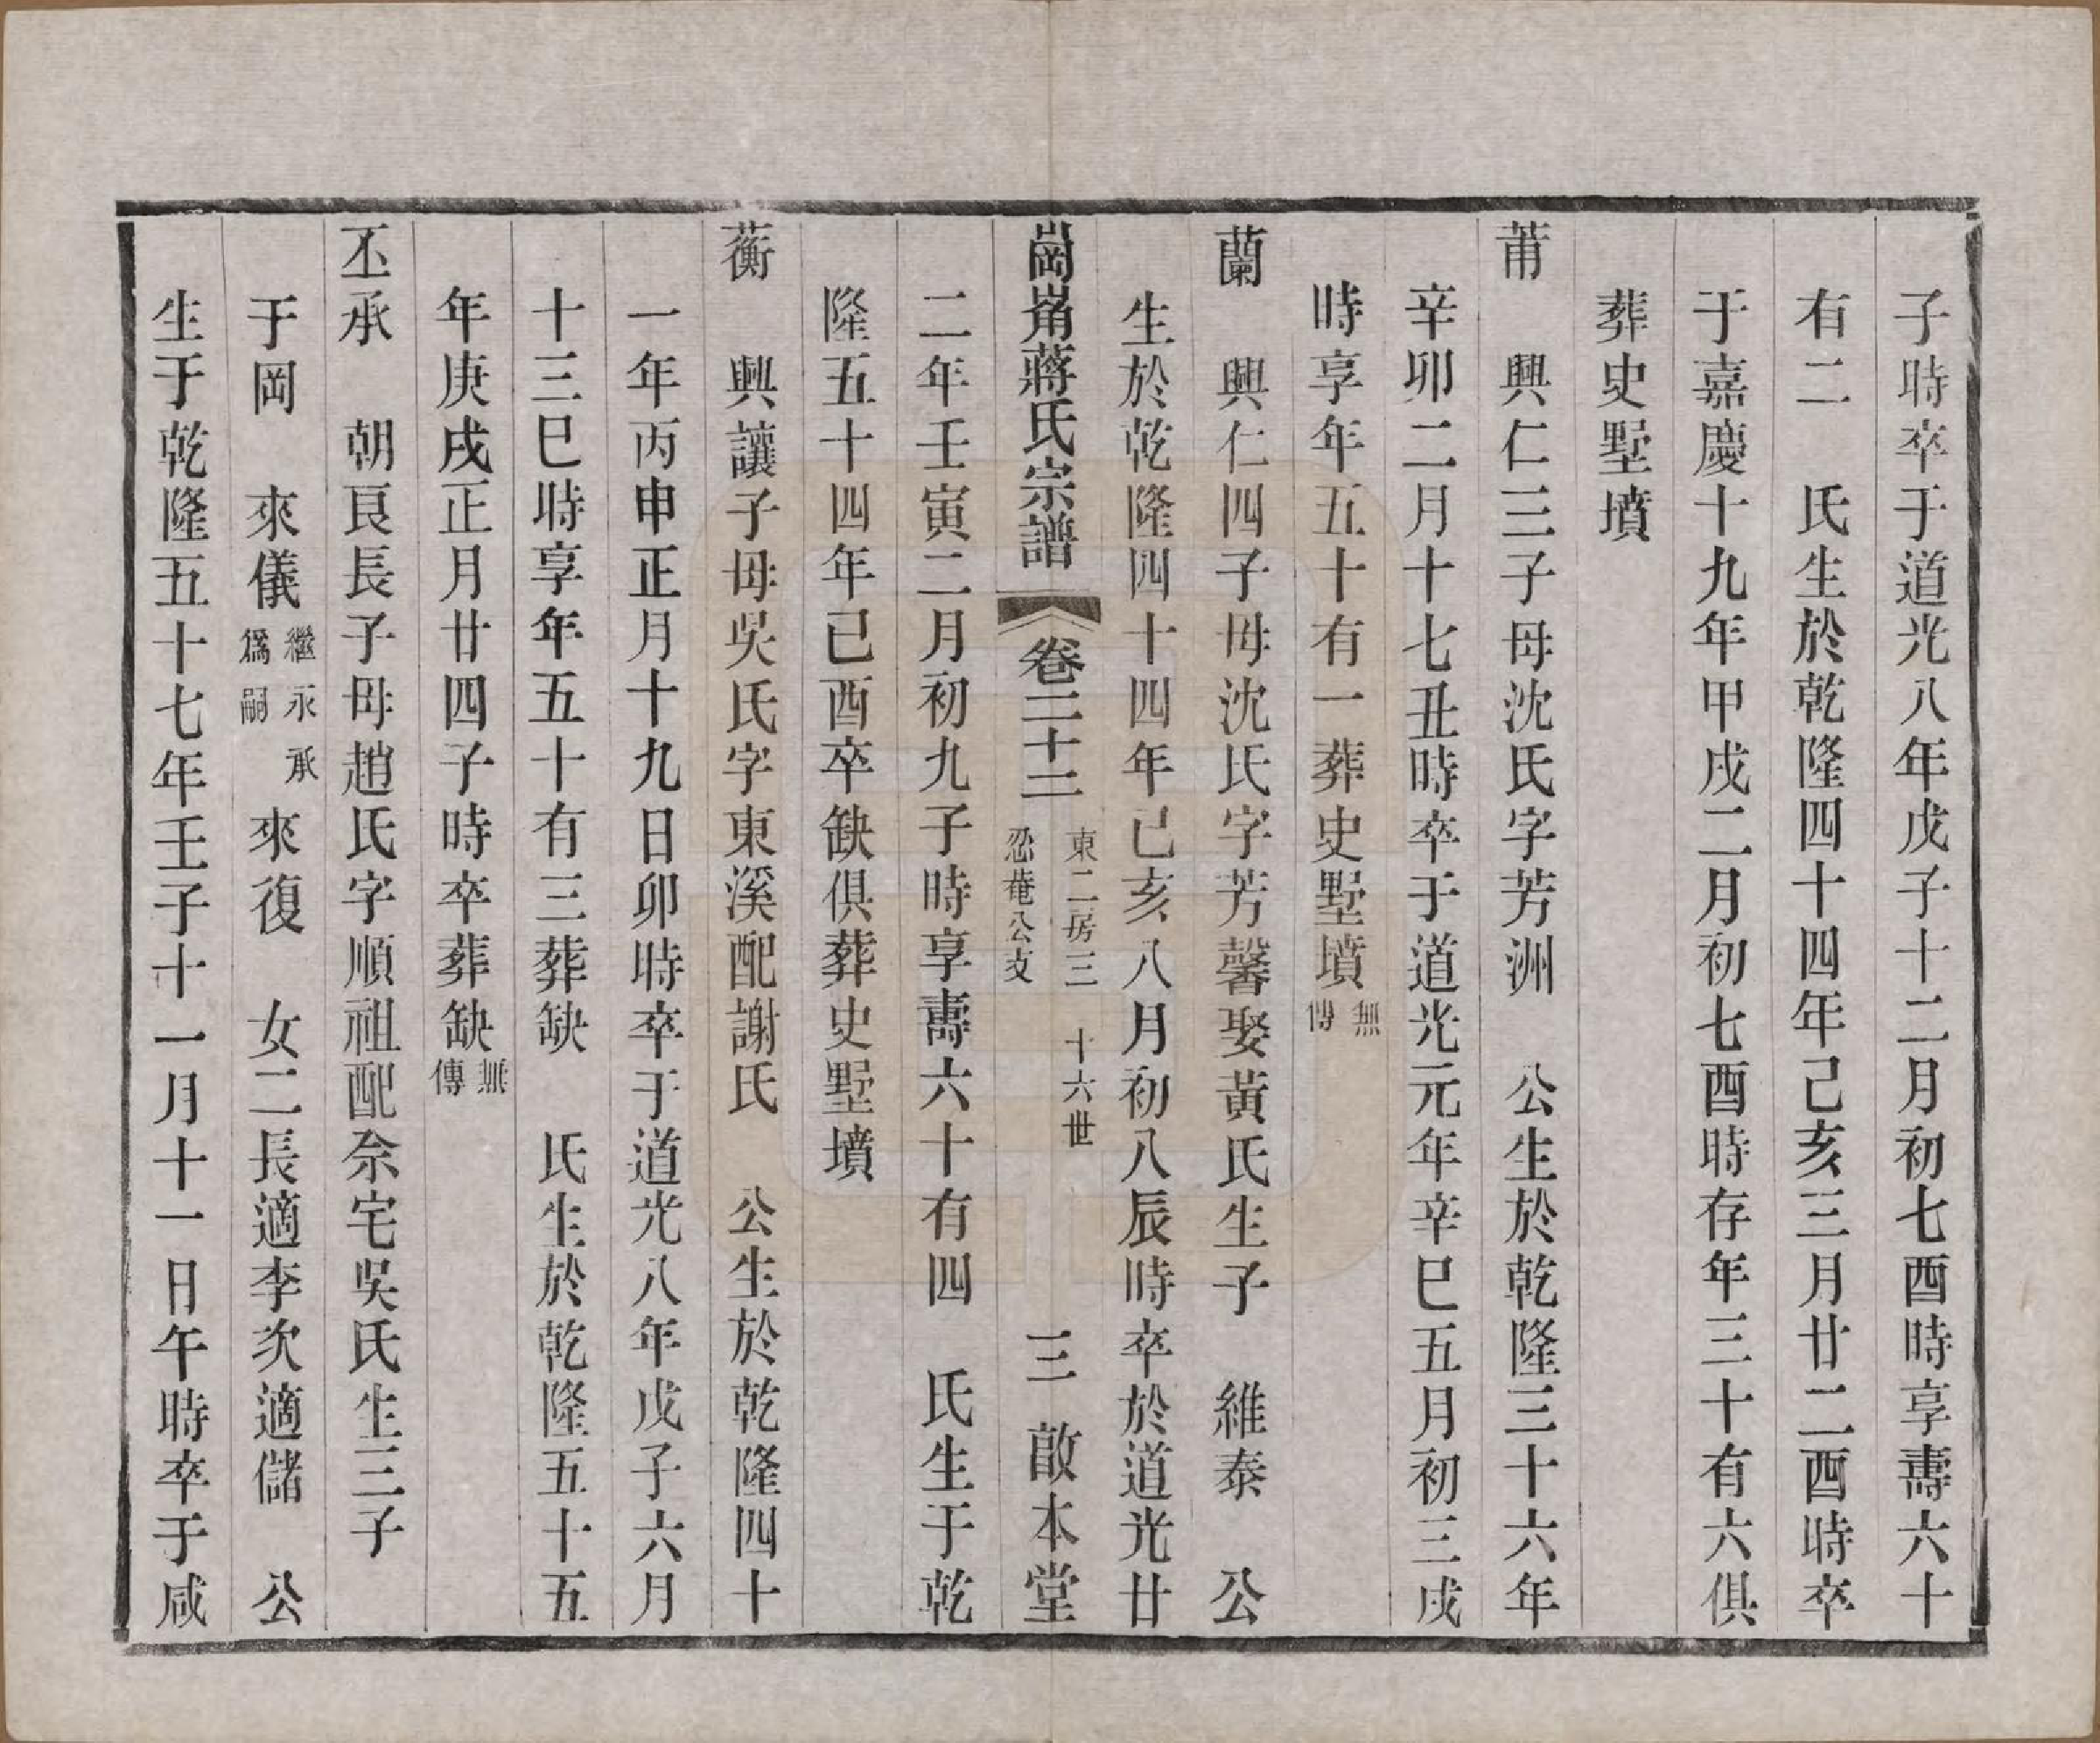 子時卒于道光八年戊子十二月初七酉時享壽六十
有二　氏生於乾隆四十四年己亥三月廿二酉時卒
于嘉慶十九年甲戌二月初七酉時存年三十有六俱
葬史墅墳
莆　興仁三子母沈氏字芳洲　公生於乾隆三十六年
辛卯二月十七丑時卒于道光元年辛巳五月初三戌
時享年五十有一葬史墅墳無傳
蘭　興仁四子母沈氏字芳馨娶黃氏生子　維泰　公
生於乾隆四十四年己亥八月初八辰時卒於道光廿
崗峟蔣氏宗譜　卷二十二　東二房三忍菴公支　十六世　三　啟本堂
二年壬寅二月初九子時享壽六十有四　氏生于乾
隆五十四年己酉卒缺俱葬史墅墳
蘅　興讓子母吳氏字東溪配謝氏　公生於乾隆四十
一年丙申正月十九日卯時卒于道光八年戊子六月
十三巳時享年五十有三葬缺　氏生於乾隆五十五
年庚戌正月廿四子時卒葬缺無傳
丕承　朝良長子母趙氏字順祖配佘宅吳氏生三子
于岡　來儀繼永承爲嗣　來復　女二長適李次適儲　公
生于乾隆五十七年壬子十一月十一日午時卒于咸